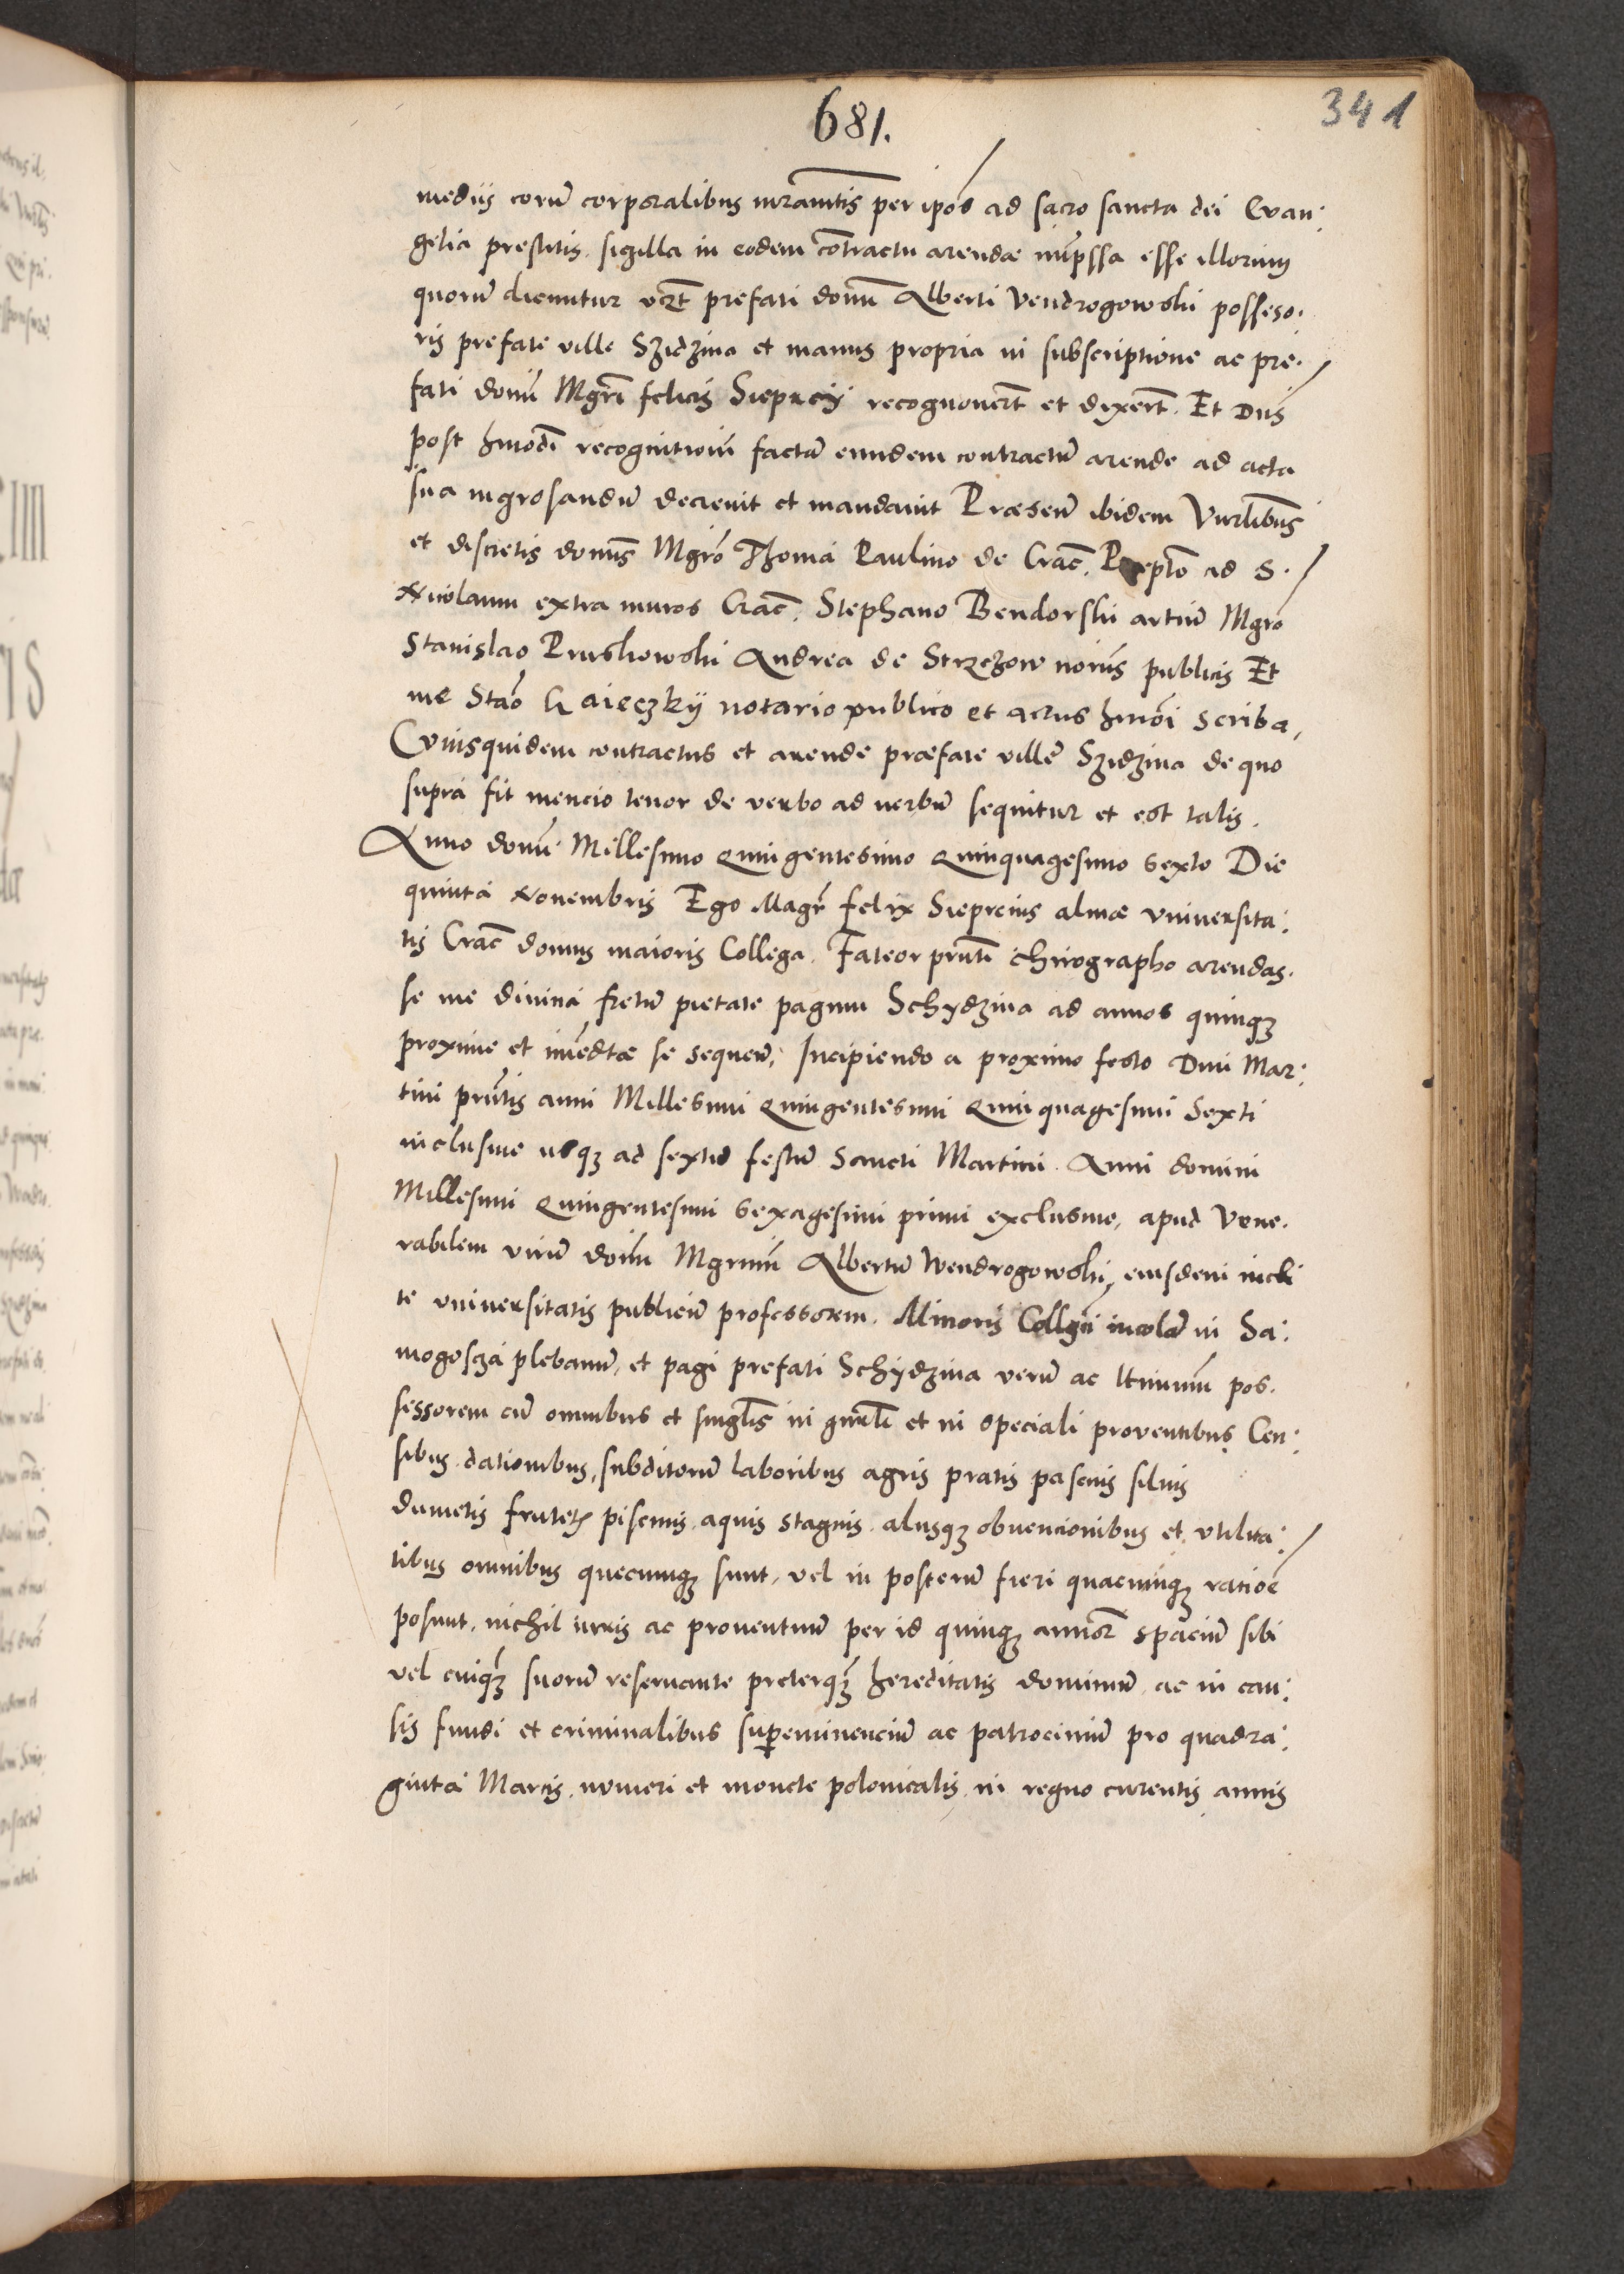 681.
341
medijs eorum corporalibus iuramentis per ip̃os ad sacro sancta dei Evan:
gelia prestitis sigilla in eodem contractu arendæ imp̃ssa esse illorum
quorum dicuntur vꝫt prefati domini Alberti Vendrogowski possesso.
ris prefate ville Szidzina et manus propria in subscriptione ac pre.
fati domini Mgr̃i felicis Sieprcij recognoverũt et dixerũt. Et Dñs
post hmõdi recognitionem factam eundem contractum arende ad acta
sua ingrosandum decrevit et mandavit Præsen̄ ibidem Venlibus
et discretis dominis Mgrõ Thoma Paulino de Crac̃. ad S.
Nicolaum extra muros Crac̃. Stephano Bendorski artium Mgrõ
Stanislao Pruskowski Andrea de Strzezow norijs publicis Et
me Staõ Gaieczkij notario publico et actus hmõi scriba,
Cuiusquidem contractus et arende præfate ville Szidzina de quo
supra fit mencio tenor de verbo ad verbum sequitur et est talis.
Anno domini Millesimo Quingentesimo Quinquagesimo sexto Die
quinta Novembris Ego Magr̃ felix Sieprcius almæ vniversita:
tis Crac̃ domus maioris Collega. Fateor prñti chirographo arendas.
se me divina fretum pietate pagum Schydzina ad annos quinqꝫ
proxime et imẽdtæ se sequen̄, Incipiendo a proximo festo Divi Mar:
tini prñtis anni Millesimi Quingentesimi Quinquagesimi Sexti
inclusive usqꝫ ad sextum festum Sancti Martini. Anni domini
Millesimi Quingentesimi sexagesimi primi exclusive, apud Vene.
rabilem virum dom̃ Mgrum Albertum Wendrogowski, eiusdem incli
te vniversitatis publicum professorem. Minoris Collgij incolam in Sa:
mogoscza plebanum, et pagi prefati Schydzina verum ac ltimum pos.
sessorem cum omnibus et singlis in gnrli et in speciali proventibus, Cen:
sibus dationibus, subditorum laboribus agris pratis pascuis silvis
dumetis frutetis piscinis aquis stagnis alijsqꝫ obvencionibus et vtilita:
tibus omnibus quecumqꝫ sunt, vel in posterum fieri quacumqꝫ ratiõe
posunt, nichil iuris ac proventuum per id quinqꝫ annorꝫ spacium sibi
vel cuiqꝫ suorum reservante preterqꝫ hereditatis dominium ac in cau:
sis fundi et criminalibus supereminencium ac patrocinium pro quadra:
ginta Marcis numeri et monete polonicalis in regno curentis annis